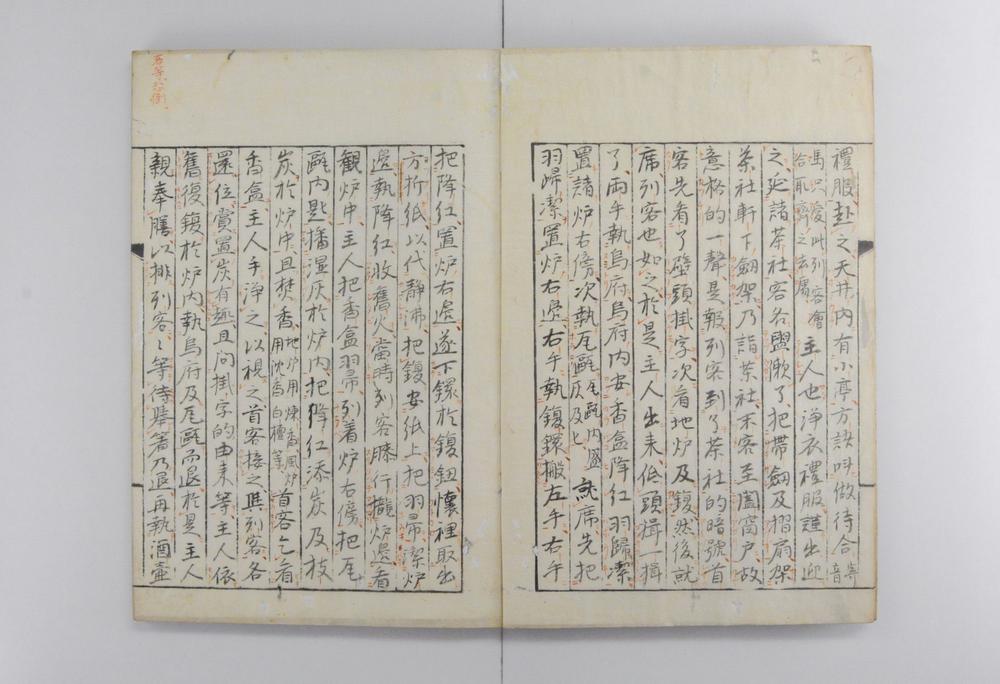 禮服赴之天井内有小亭方訣叫做待合寄音
馬只愛此列客會合取齊之去處主人也淨衣禮服謹出迎
之延諸茶社客各盥漱了把帶劔及摺扇架
茶社軒下劔架乃詣茶社末客至闔窗戸故
意格的一聲是報列客到了茶社的暗號首
客先看了壁頭掛字次看地炉及鍑然後就
席列客也如之於是主人出来低頭揖一揖
了両手執烏府烏府内安香盒降红羽帚潔
置諸炉右傍次執瓦甌瓦甌内盛灰及匕就席先把
羽帚潔置炉右邊右手執鍑鐶搬左手右手
把降红置炉右邊遂下鐶於鍑鈕懐裡取出
方折紙以代静沸把鍑安紙上把羽帚潔炉
邊執降红收舊火當時列客膝行攏炉邊看
観炉中主人把香盒羽帚列着炉右傍把瓦
甌内匙播湿灰於炉内把降红添炭及枝
炭於炉中且焚香地炉用煉香風炉用沈香白檀等首客乞看
香盒主人手淨之以視之首客接之與列客各
還位賞置炭有趣且问掛字的由来等主人依
舊復鍑於炉内執烏府及瓦甌而退於是主人
親奉膳以排列客々等待舉箸乃退再執酒壷